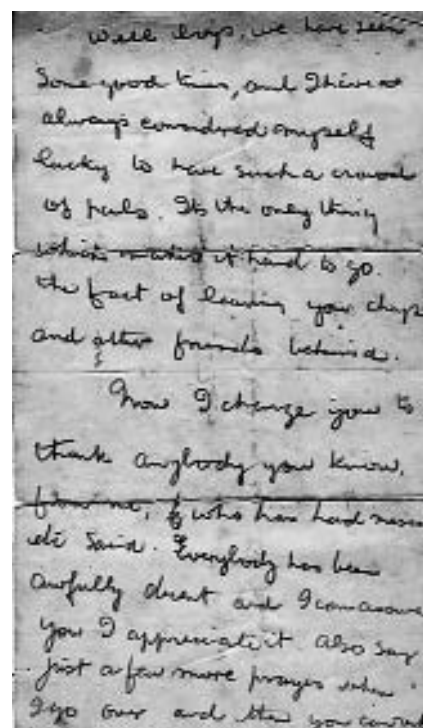 Well boys, we have seen
some good times, and I have
always considered myself
lucky to have such a crowd
of pals. Its the only thing
which makes it hard to go.
the fact of leaving you chaps
and other friends behind.
Now I charge you to
thank anybody you know,
from me, who has had masses
etc said. Everybody has been
awfully decent and I can assure
you I appreciate it. Also say
just a few more prayers when
I go over and then you can rest